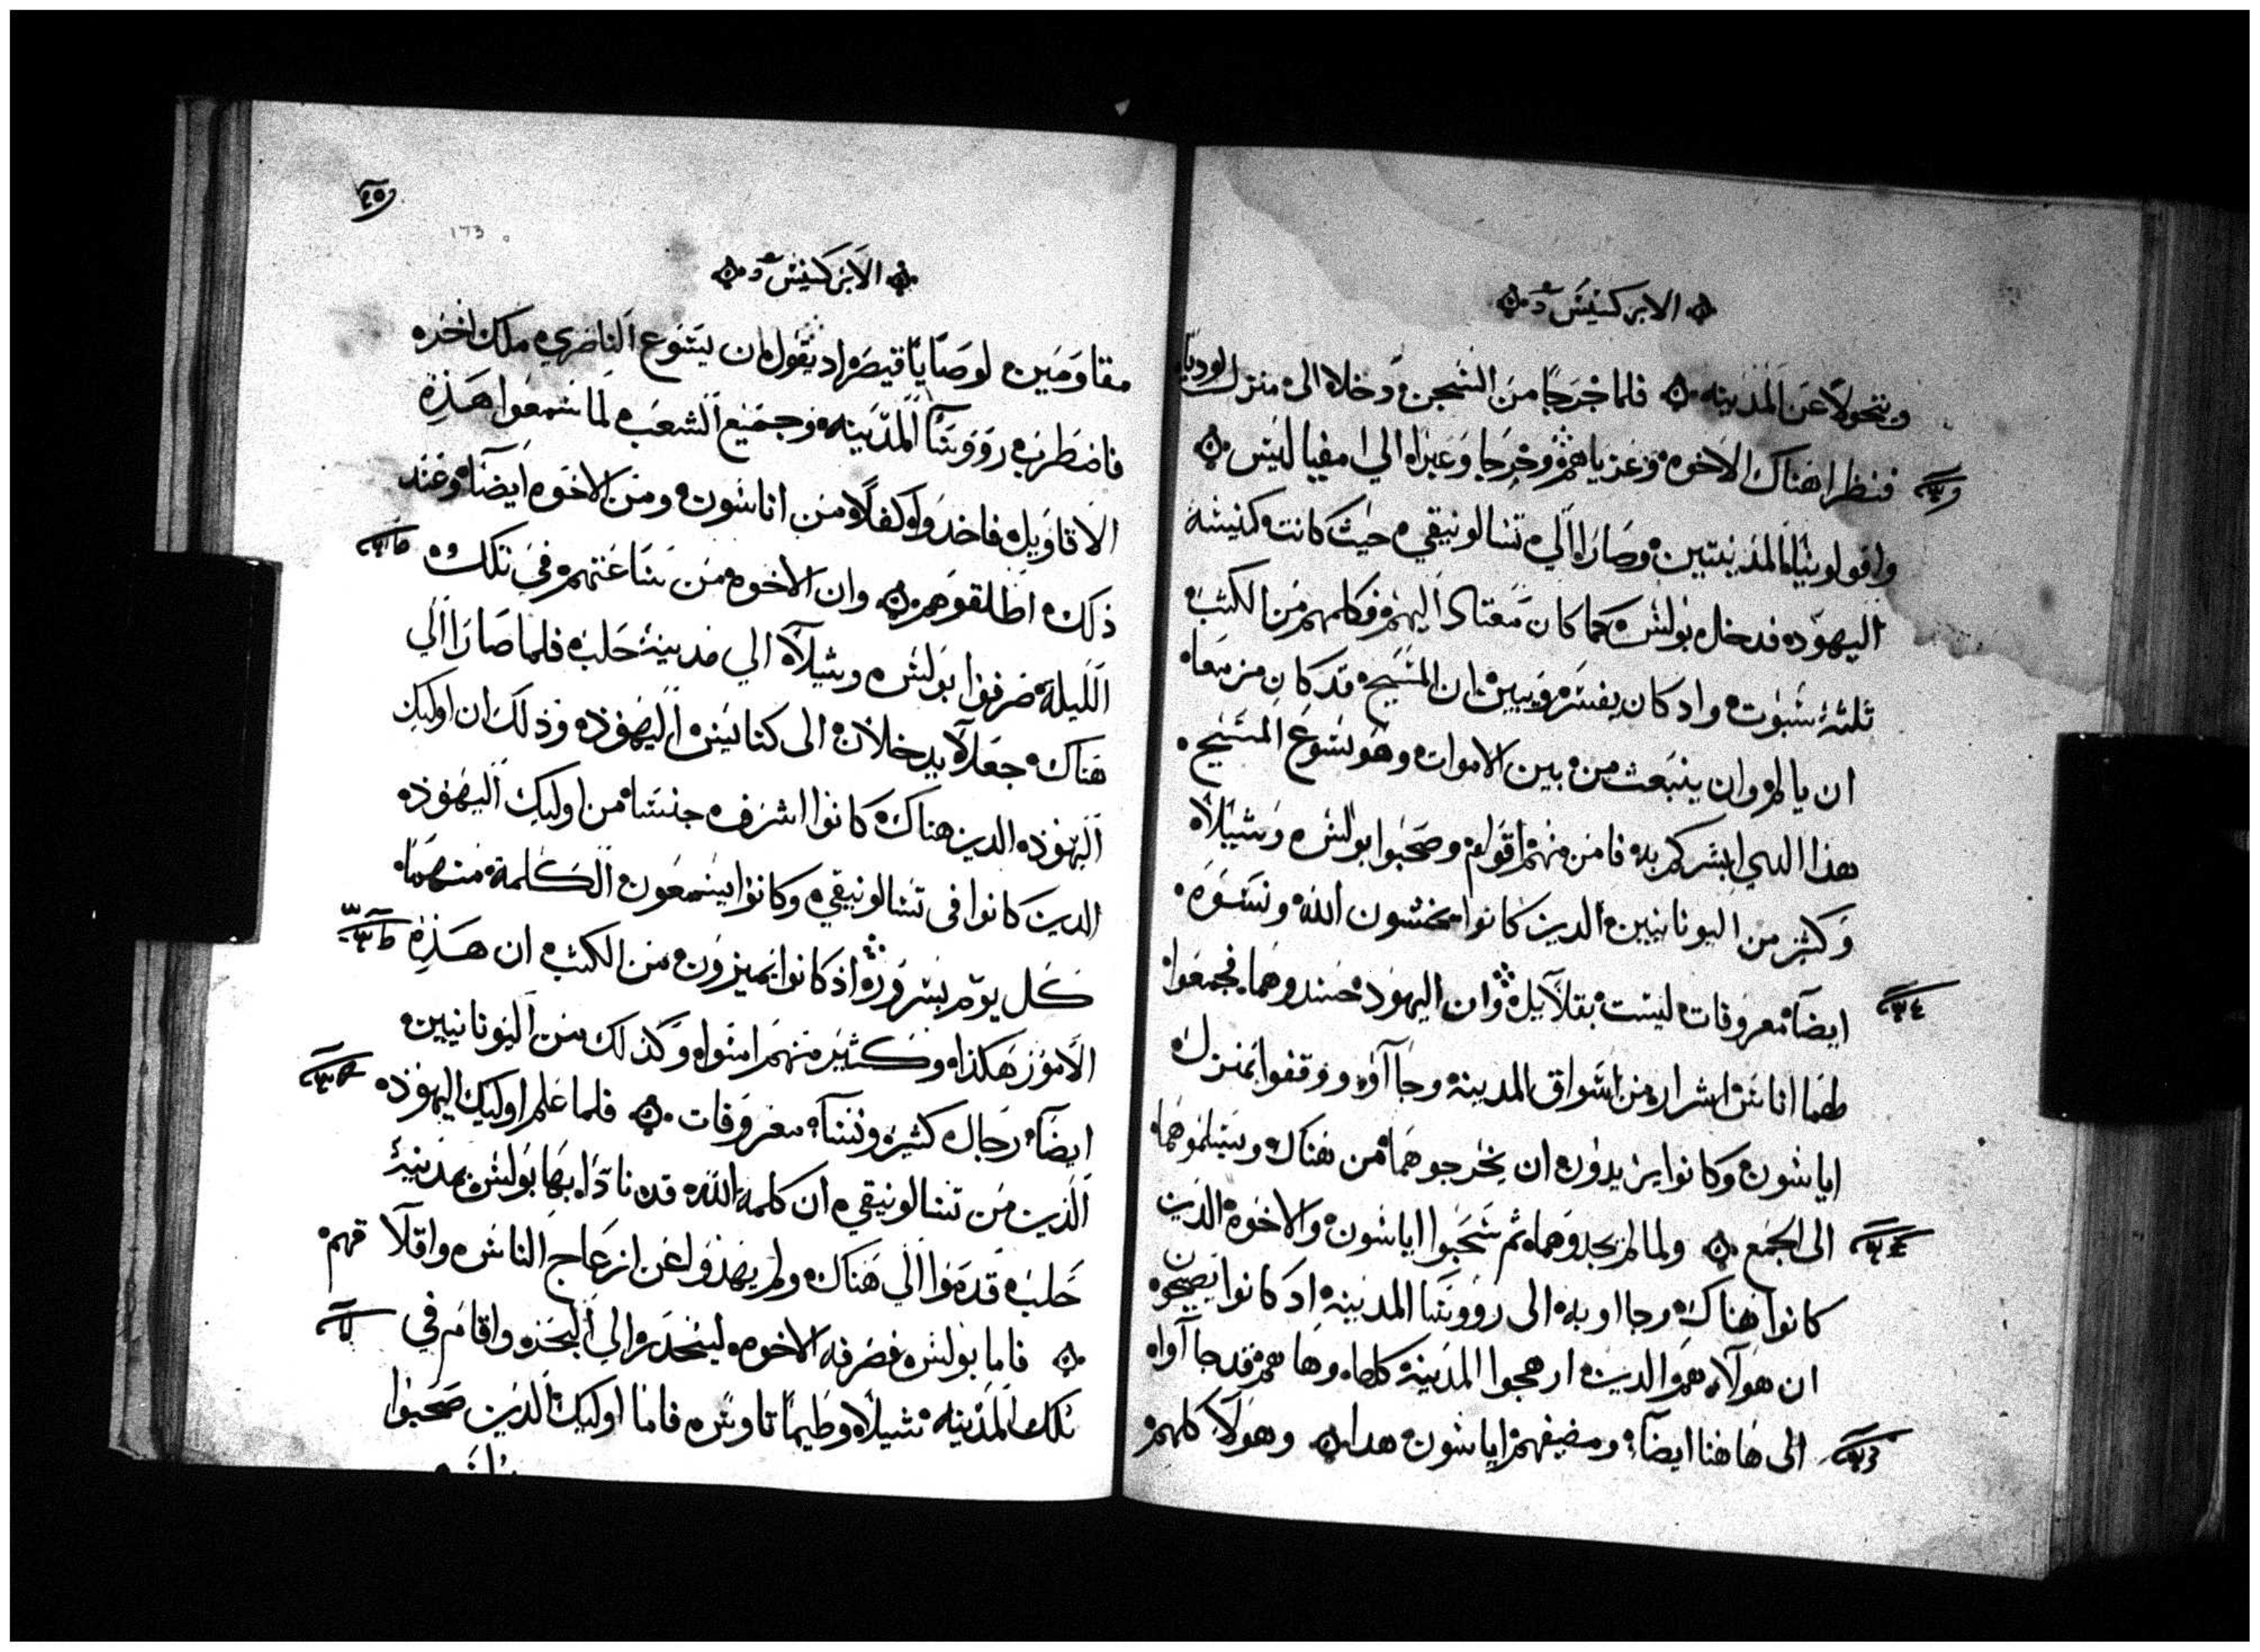 الابركسيس
ويتحولا عن المدينه فلما خرجا من السجن دخلا الى منزل لوديا
فنظرا هناك الاخوه وعزياهم وخرجا وعبرا الي امفيبا ليس
وافولونيا المدينتين وصارا الي تسالونيقي حيث كانت كنيسة
اليهود فدخل بولس كما كان معتاد اليهم فكلمهم من الكتب
ثلثة سبوت واد كان يفسر ويبين ان المسيح قد كان مزمعا
ان يالم وان ينبعث من بين الاموات وهو يسوع المسيح
هذا الدي ابشركم به فامن منهم اقوام وصحبوا بولس وشيلا
وكثير من اليونانيين الدين كانوا يخشون الله ونسوه
ايضا معروفات ليست بقلايل وان اليهود حسدوهما فجمعوا
لهما اناس اشرار من اسواق المدينة وجآاوا ووقفوا بمنزل
اياسون وكانوا يريدون ان يخرجوهما من هناك ويسلموهما
الى الجمع ولما لم يجدوهما ثم سحبوا اياسون والاخوه الدين
كانوا هناك وجااو به الى رووسا المدينه اد كانوا يصيحون
ان هولآ هم الدين ارهجوا المدينة كلها وها هم قد جآاوا
الى هاهنا ايضا ومضيفهم اياسون هدا وهولآ كلهم
٢٥
173
الابركسيس
مقاومين لوصايا قيصر اد يقول ان يسوع الناصري ملك اخر
فاضطرب رووسا المدينه وجميع الشعب لما سمعوا هذه
الاقاويل فاخدوا كفلا من اناسون ومن الاخوه ايضا وعند
ذلك اطلقوهم وان الاخوه من ساعتهم في تلك
الليلة صرفوا بولس وشيلا الي مدينة حلب فلما صارا الي
هناك جعلا يدخلان الى كنايس اليهود وذلك ان اوليك
اليهود الدين هناك كانوا اشرف جنسا من اوليك اليهود
الدين كانوا في تسالونيقي وكانوا يسمعون الكلمة منهما
كل يوم بسرور اذ كانوا يميزون من الكتب ان هذه
الامور هكذا وكثير منهم امنوا وكذلك من اليونانيين
ايضا رجال كثير ونسآ معروفات فلما علم اوليك اليهود
الذين من تسالونيقي ان كلمة الله قد نادا بها بولس بمدينة
حلب قدموا الي هناك ولم يهذوا عن ازعاج الناس واقلاقهم
فاما بولس فصرفه الاخوه لينحدر الي البحر واقام في
تلك المدينه شيلا وطيماتاوس فاما اوليك الدين صحبوا